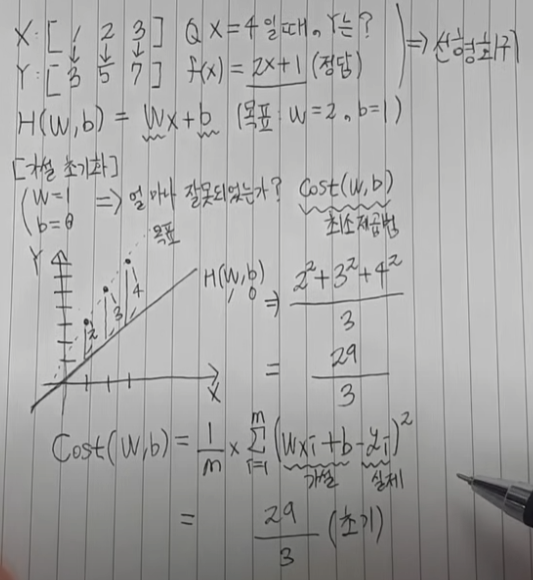 X: [ 1 2 3 ] Q X = 4 일때, Y는?
↓ ↓ ↓ ⇒ 선형회귀
Y: [ 3 5 7 ] f(x) = 2x+1 (정답)
H(W,b) = Wx+b (목표: W=2, b=1)
[가설 초기화]
W=1
b=0 ⇒ 얼마나 잘못되었는가? Cost(W,b)
최소제곱법
목표
Y
H(W,b)
1 0
2 3 4
X
⇒ 2²+3²+4² / 3
= 29 / 3
Cost(W,b) = 1/m × Σ(i=1, m) (Wxi + b - yi)²
가설 실제
= 29/3 (초기)